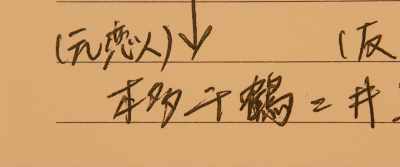 (元恋人) ↓ (仮
本多千鶴=井